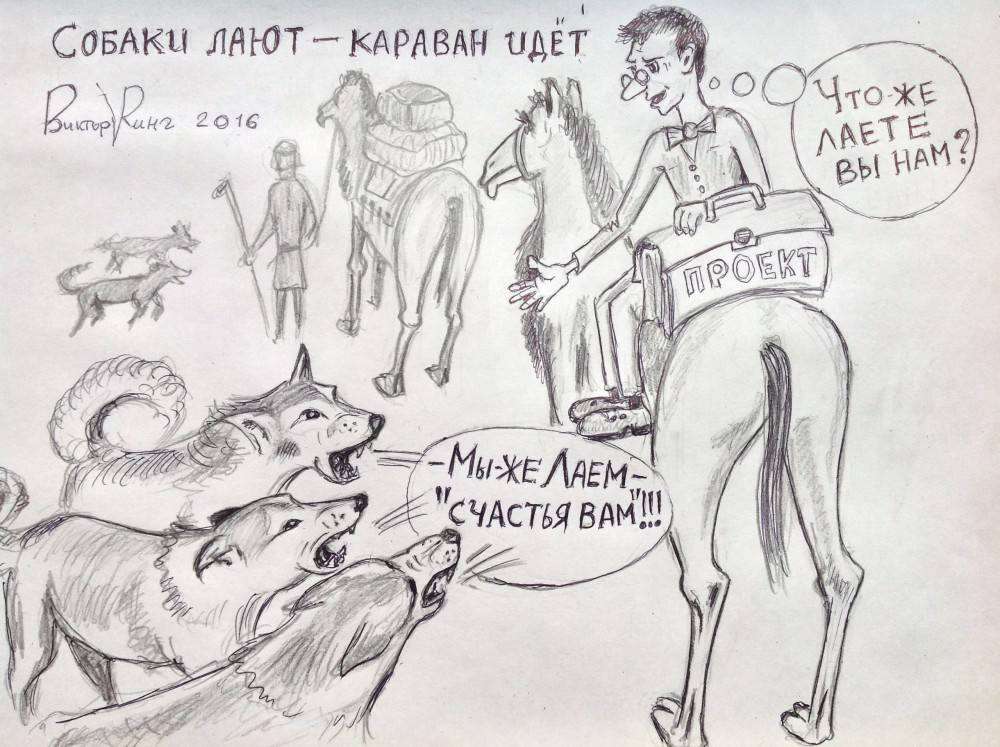 СОБАКИ ЛАЮТ – КАРАВАН ИДЁТ
Виктор Ринг 2016
ЧТО-ЖЕ
ЛАЕТЕ
ВЫ НАМ?
ПРОЕКТ
-МЫ-ЖЕ ЛАЕМ-
"СЧАСТЬЯ ВАМ"!!!